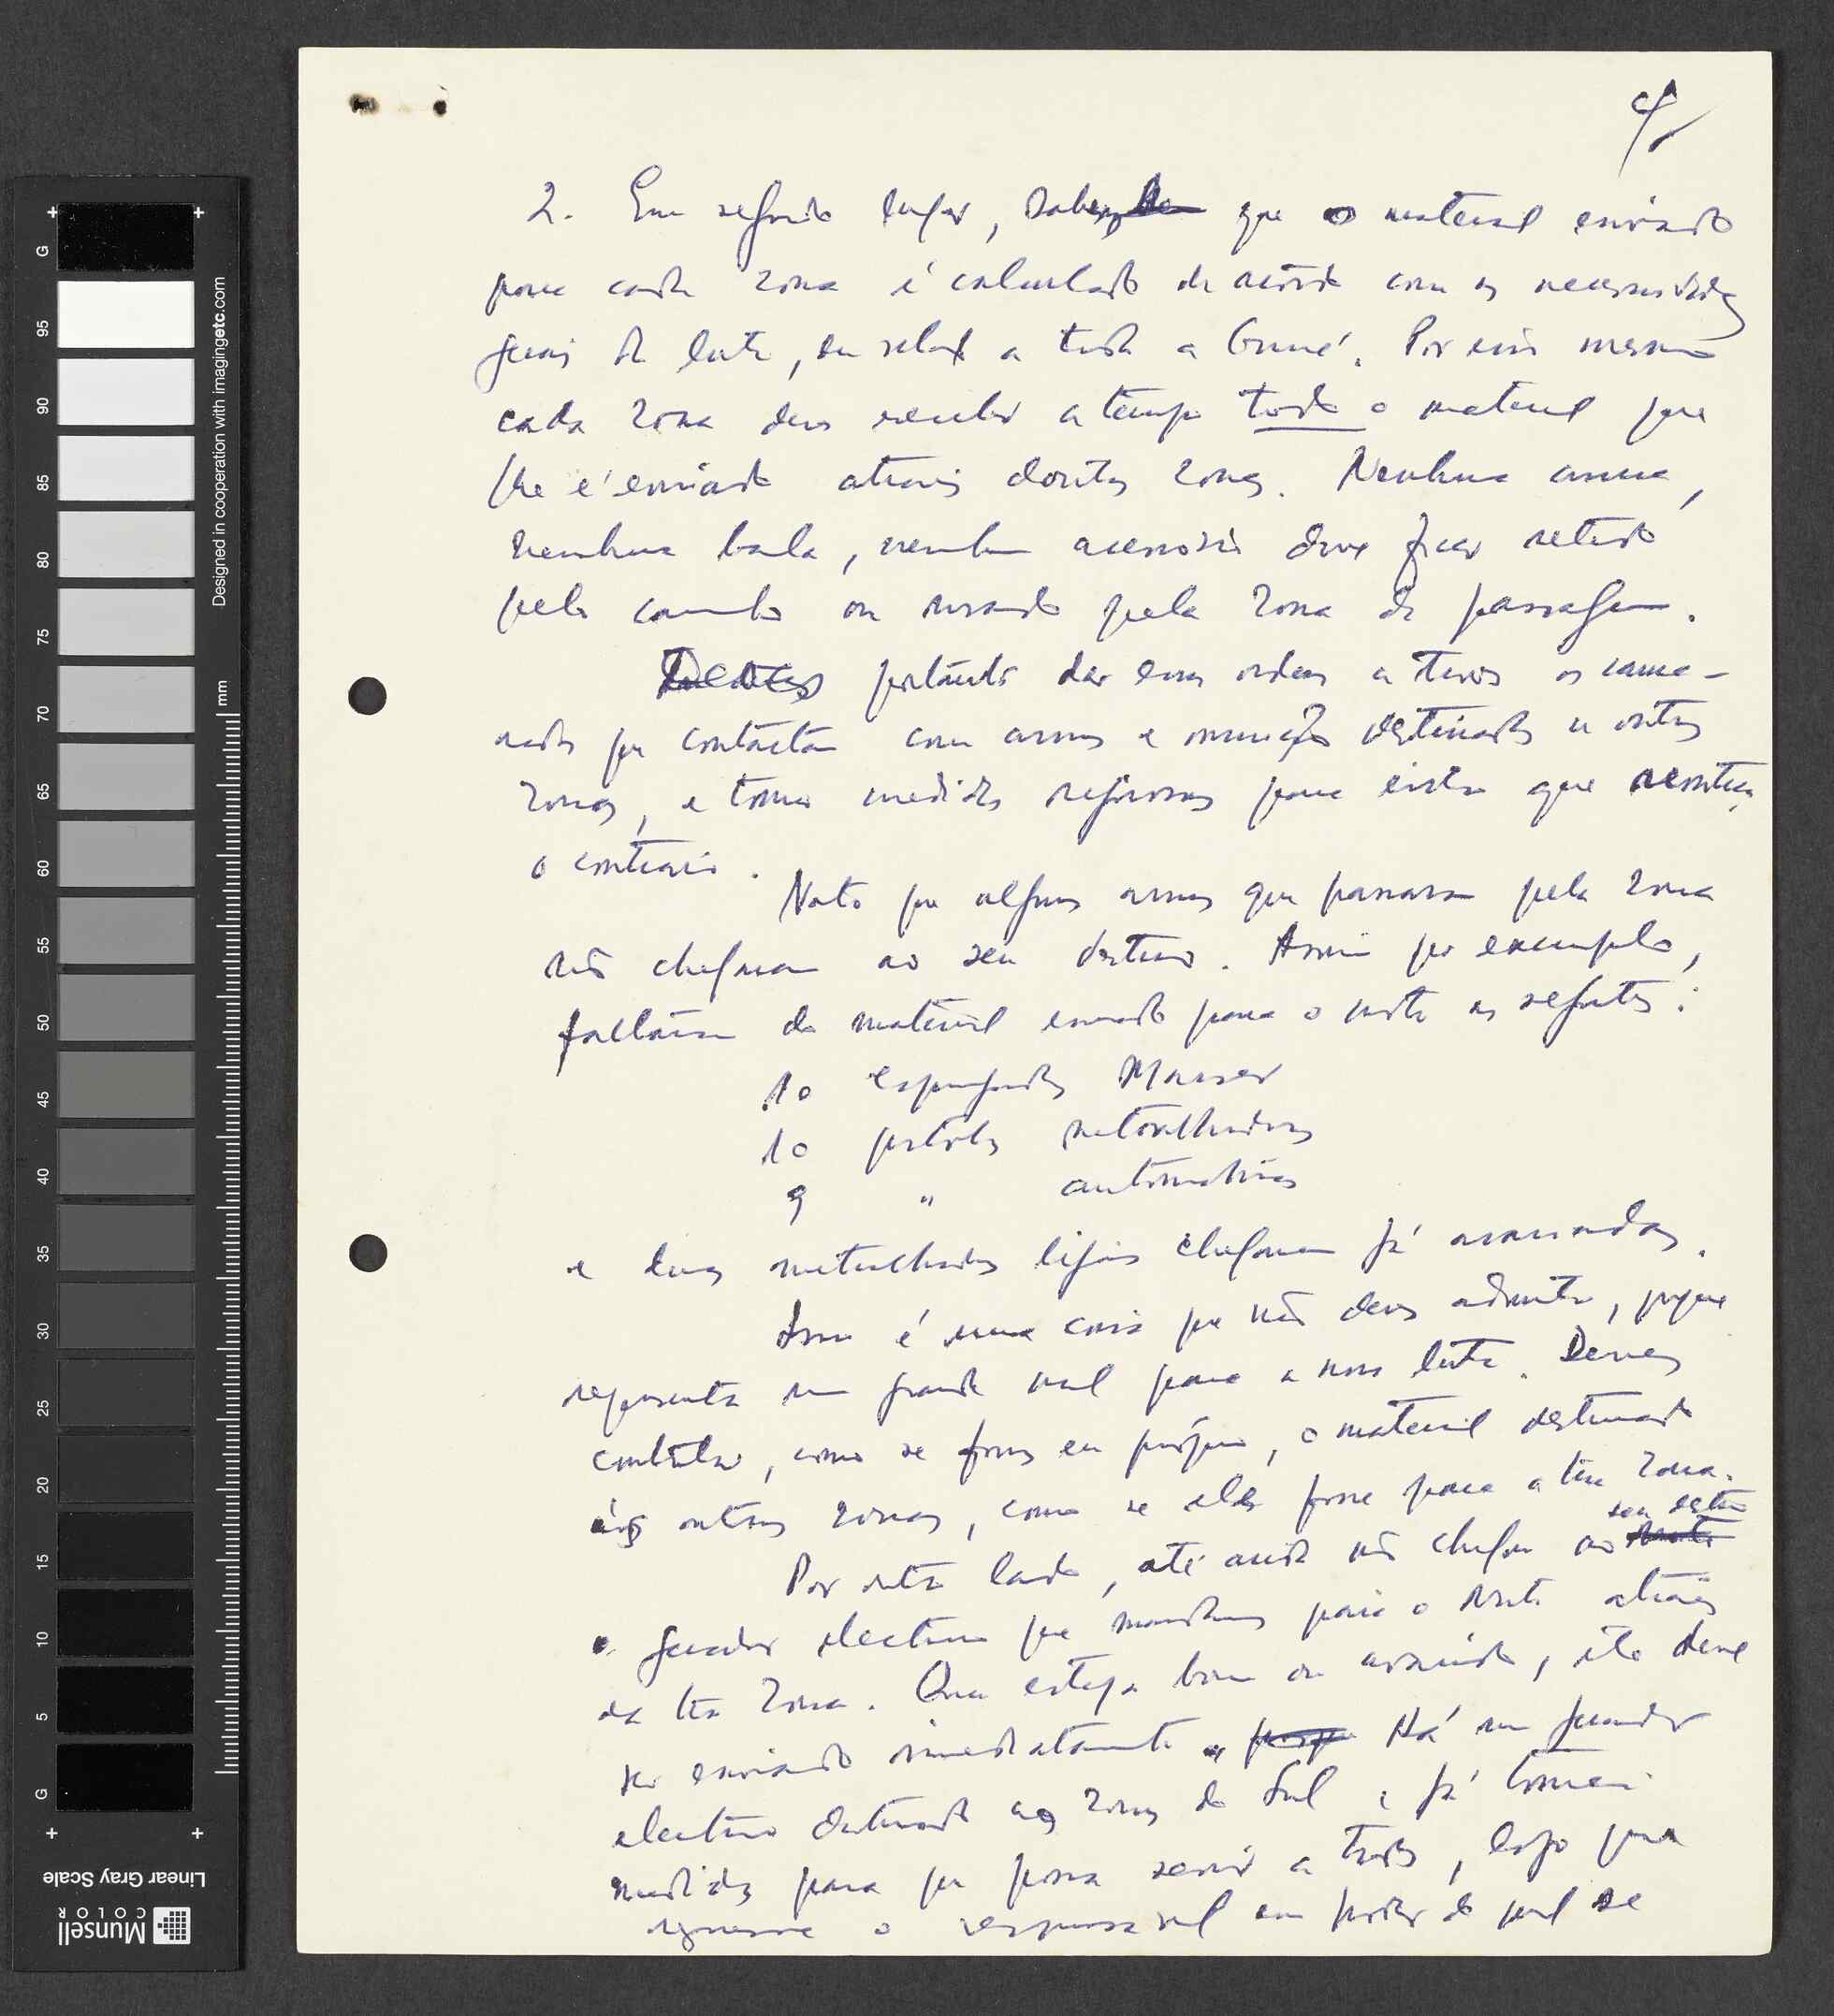 4/
2. Em segundo lugar, sabes que o material enviado
para cada zona é calculado de acôrdo com as necessidades
gerais da luta, em relação a toda a Guiné. Por isso mesmo
cada zona deve receber a tempo todo o material que
lhe é enviado através doutras zonas. Nenhuma arma,
nenhuma bala, nenhum acessório deve ficar retido
pelo caminho ou usado pela zona de passagem.
Deves portanto dar essas ordens a todos os cama-
radas que contactam com armas e munições destinadas a outras
zonas, e tomar medidas rigorosas para evitar que aconteça
o contrário.
Noto que algumas armas que passaram pela zona
não chegaram ao seu destino. Assim por exemplo,
faltaram do material enviado para o norte as seguintes:
10 espingardas Mauser
10 pistolas metralhadoras
9 " automáticas
e duas metralhadoras ligeiras chegaram já avariadas.
Isso é uma coisa que não deves admitir, porque
representa um grande mal para a nossa luta. Deves
controlar, como se fosses eu próprio, o material destinado
às outras zonas, como se ele fosse para a tua zona.
Por outro lado, até ainda não chegou ao seu destino
o gerador electrico que mandamos para o Norte através
da tua zona. Quer esteja bom ou avariado, ele deve
ser enviado imediatamente. Há um gerador
electrico destinado às zonas do Sul e já tomei
medidas para que possa servir a todos, logo que
regresse o responsável em poder do qual se